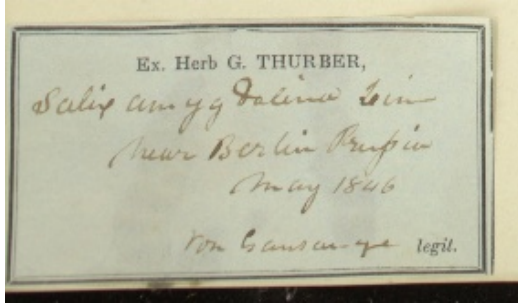 Ex. Herb G. THURBER,
Salix amygdalina Lin
near Berlin Prussia
May 1846
von legit.